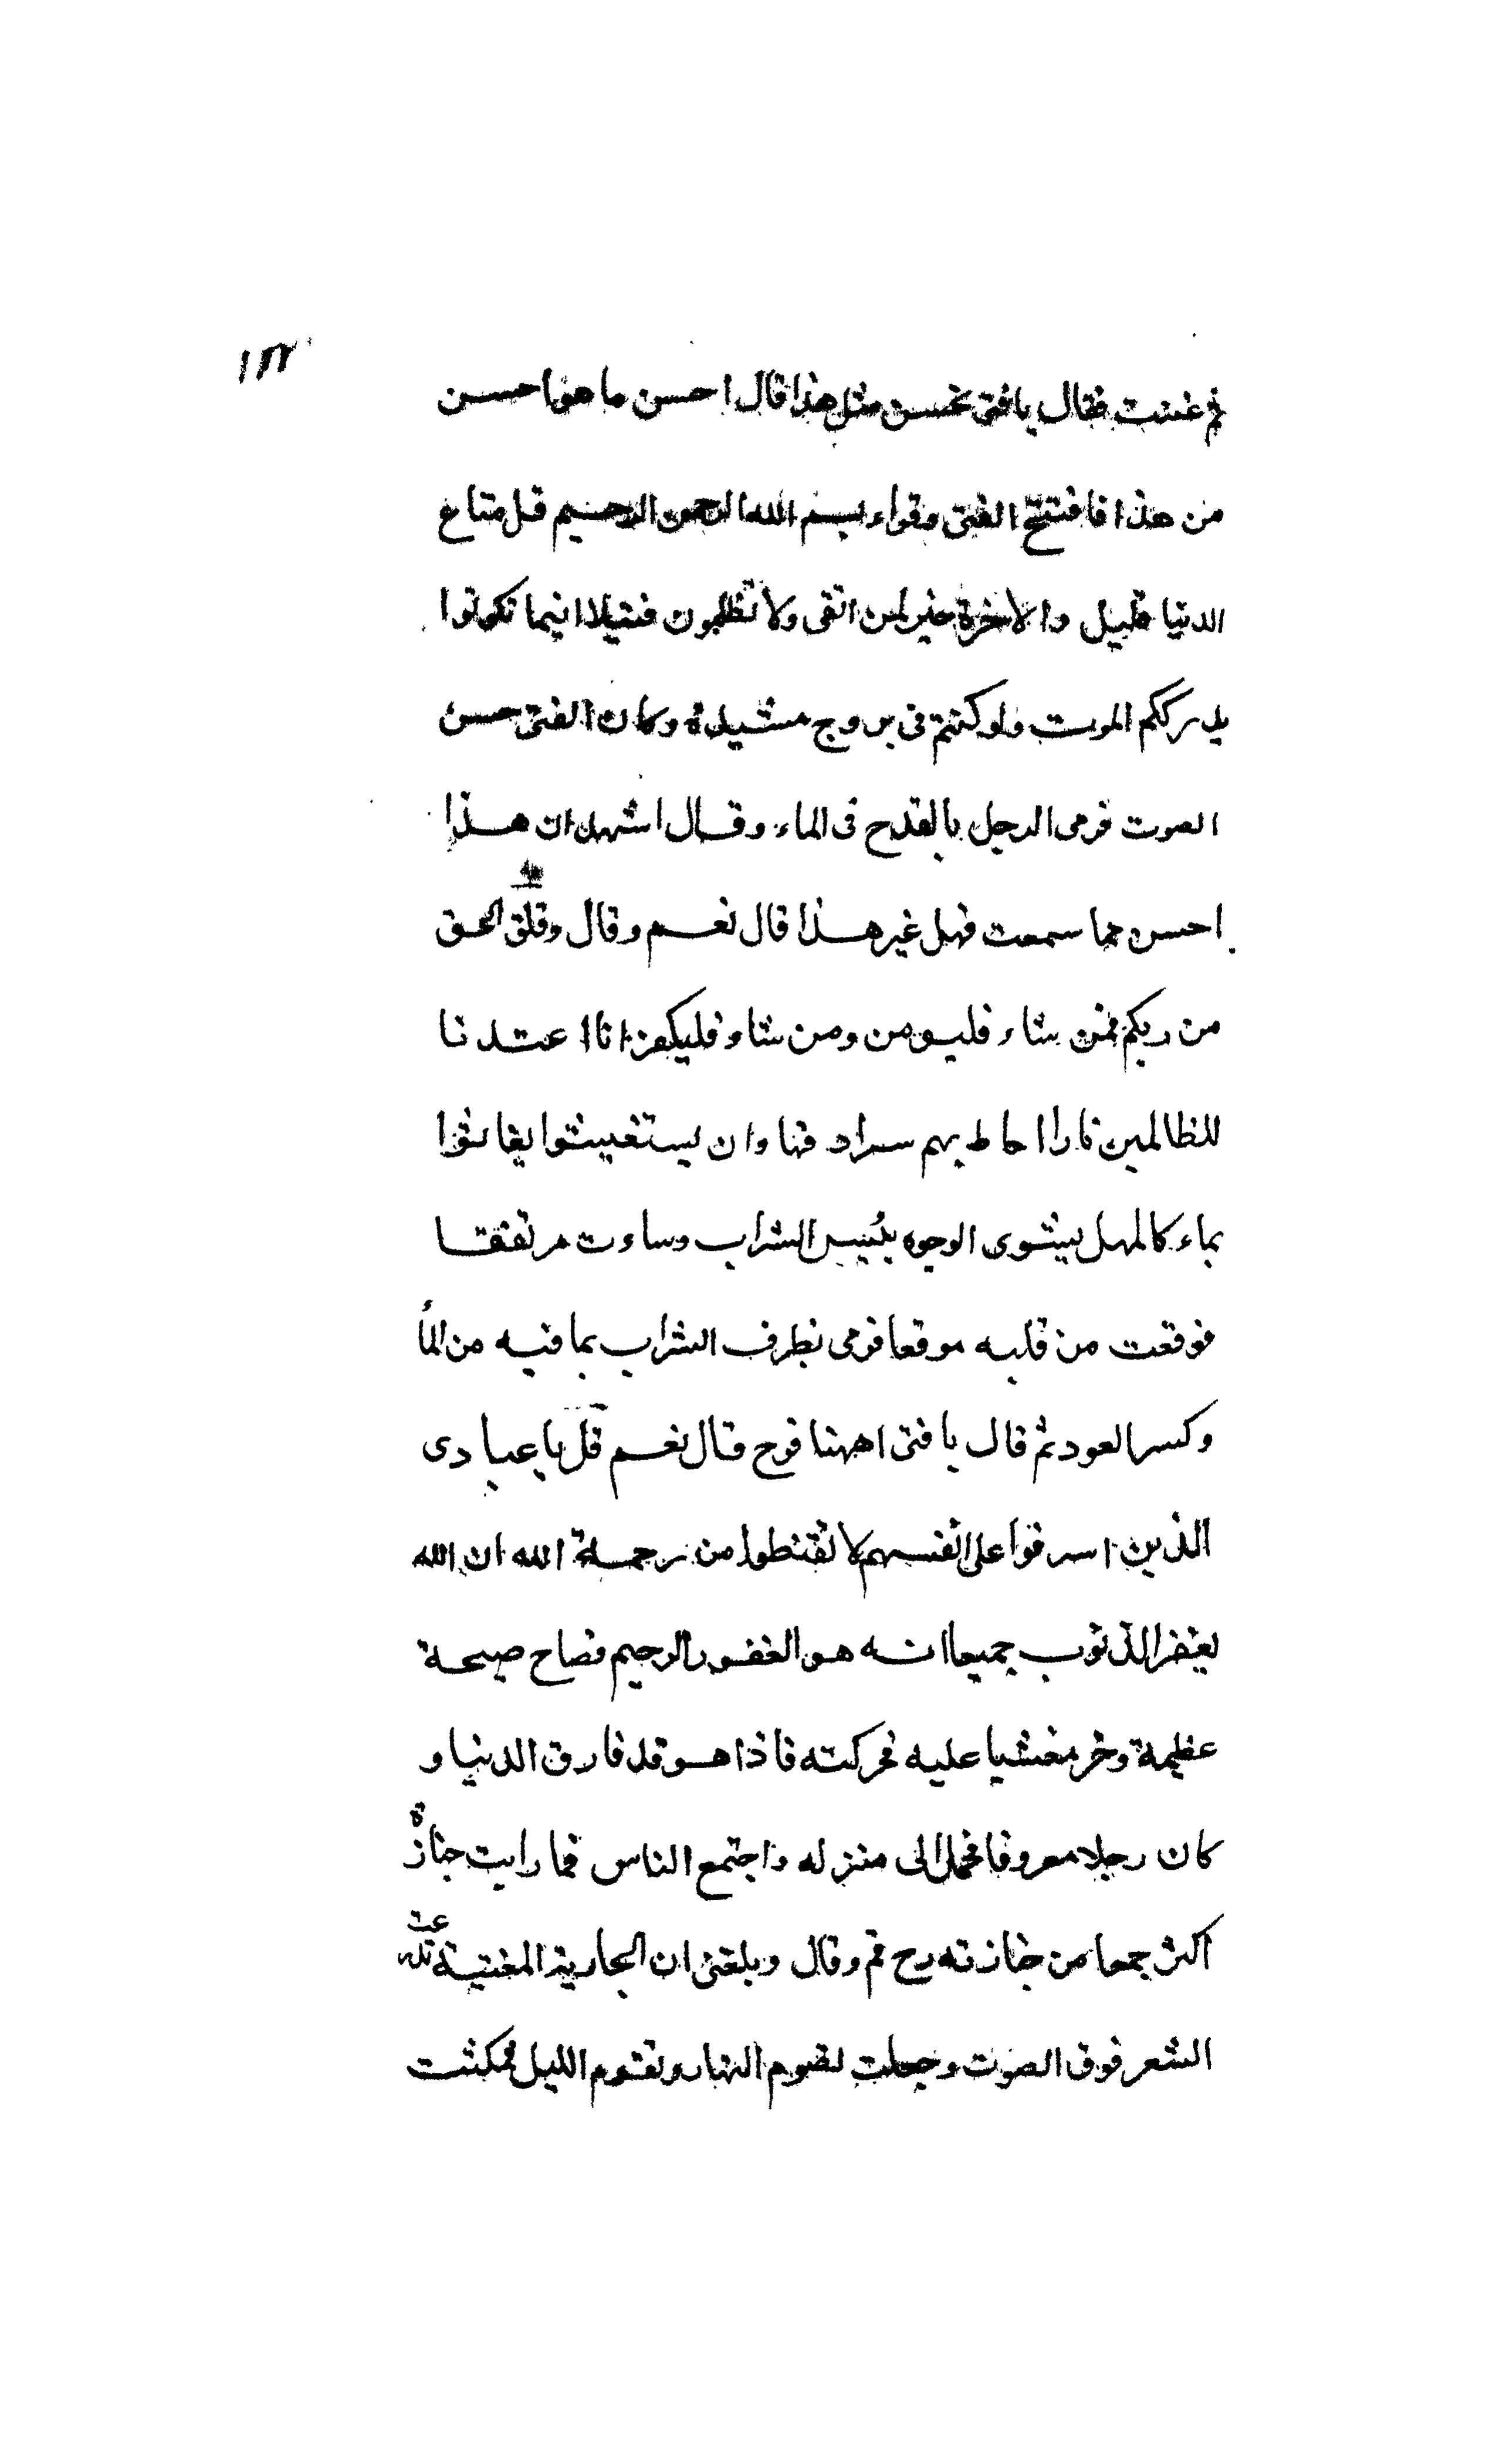 ١٢٢
ثم غنت فقال يا فتى تحسن مثل هذا قال احسن ما هو احسن
من هذا فافتتح الفتى وقراء بسم الله الرحمن الرحيم قل متاع
الدنيا قليل والاخرة خير لمن اتقى ولا تظلمون فتيلا اينما تكونوا
يدرككم الموت ولو كنتم فى بروج مشيدة وكان الفتى حسن
الصوت فرمى الرجل بالقدح فى الماء وقال اشهد ان هذا
احسن مما سمعت فهل غير هذا قال نعم وقال وقل الحق
من ربكم فمن شاء فليومن ومن شاء فليكفر انا اعتدنا
للظالمين نارا احاط بهم سرادقها وان يستغيثوا يغاثوا
بماء كالمهل يشوى الوجوه بئس الشراب وساءت مرتفقا
فوقعت من قلبه موقعا فرمى بظرف الشراب بما فيه من الماء
وكسر العود ثم قال يا فتى اههنا فرح قال نعم قل يا عبادى
الذين اسرفوا على انفسهم لا تقنطوا من رحمة الله ان الله
يغفر الذنوب جميعا انه هو الغفور الرحيم فصاح صيحة
عظيمة وخر مغشيا عليه فحركته فاذا هو قد فارق الدنيا و
كان رجلا معروفا فحمل الى منزله واجتمع الناس فما رايت جنازة
اكثر جمعا من جنازته رح قم وقال وبلغنى ان الجارية المغنية تدرعت
الشعر فوق الصوت وجعلت تصوم النهار وتقوم الليل فمكثت